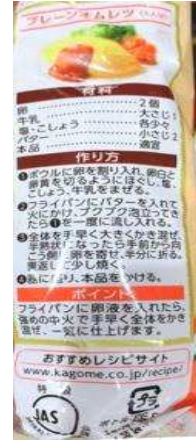 プレーンオムレツ
材料
卵 2個
牛乳 大さじ1
塩・こしょう 各少々
バター 小さじ2
本品 適宜
作り方
❶ボウルに卵を割り入れ、卵白と
卵黄を切るようにほぐし、塩、
こしょう、牛乳をまぜる。
❷フライパンにバターを入れて
火にかけ、ブクブク泡立ってき
たら❶を一度に流し入れる。
❸全体を手早く大きくかき混ぜ、
半熟状になったら手前から向
こう側に卵を寄せ、半分に折る。
裏返して少し焼く。
❹器に盛り、本品をかける。
ポイント
フライパンに卵液を入れたら、
強めの中火で手早く全体をかき
混ぜ、一気に仕上げます。
おすすめレシピサイト
www.kagome.co.jp/recipe/
JAS
プラ